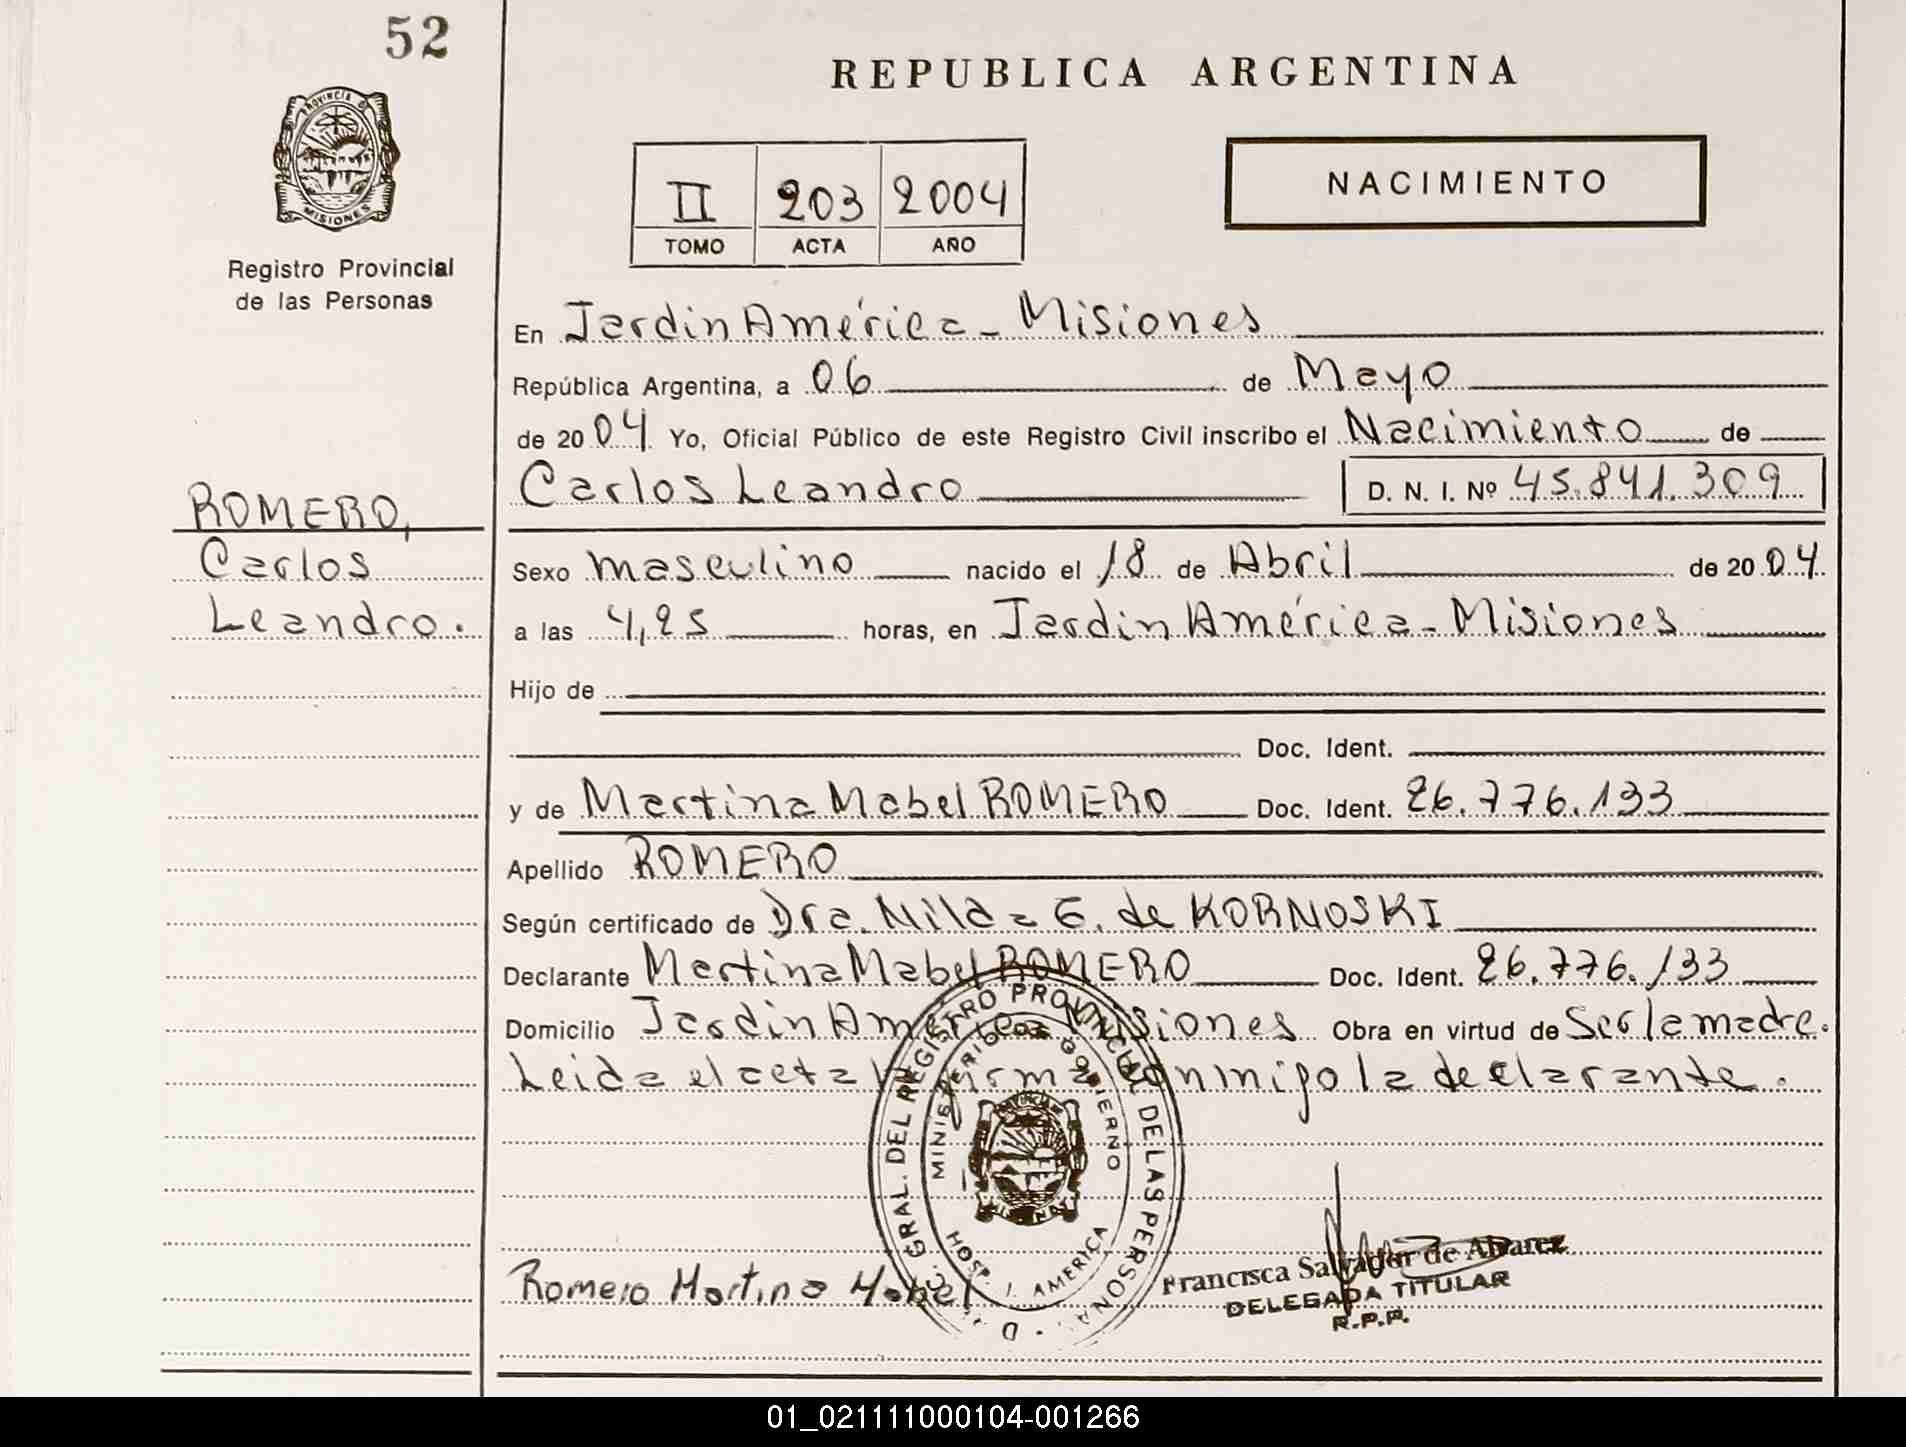 52
REPUBLICA ARGENTINA
PROVINCIA DE
MISIONES
Registro Provincial
de las Personas
II 203 2004
TOMO ACTA AÑO
NACIMIENTO
En Jardin América - Misiones
República Argentina, a 06 de Mayo
de 2004 Yo, Oficial Público de este Registro Civil inscribo el Nacimiento de
Carlos Leandro D. N. I. Nº 45.841.309
ROMERO,
Carlos
Leandro.
Sexo masculino nacido el 18 de Abril de 2004
a las 4,25 horas, en Jardin América - Misiones
Hijo de
Doc. Ident.
y de Martina Mabel ROMERO Doc. Ident. 26.776.133
Apellido ROMERO
Según certificado de Dra. Nilda G. de KORNOSKI
Declarante Martina Mabel ROMERO Doc. Ident. 26.776.133
Domicilio Jardin América Misiones Obra en virtud de Ser la madre.
Leida el acta la firma conmigo la declarante.
GRAL. DEL REGISTRO PROVINCIAL DE LAS PERSONAS
MINISTERIO DE GOBIERNO
HOSP. J. AMERICA
Romero Martina Mabel
Francisca Salvador de Alvarez
DELEGADA TITULAR
R.P.P.
01_021111000104-001266